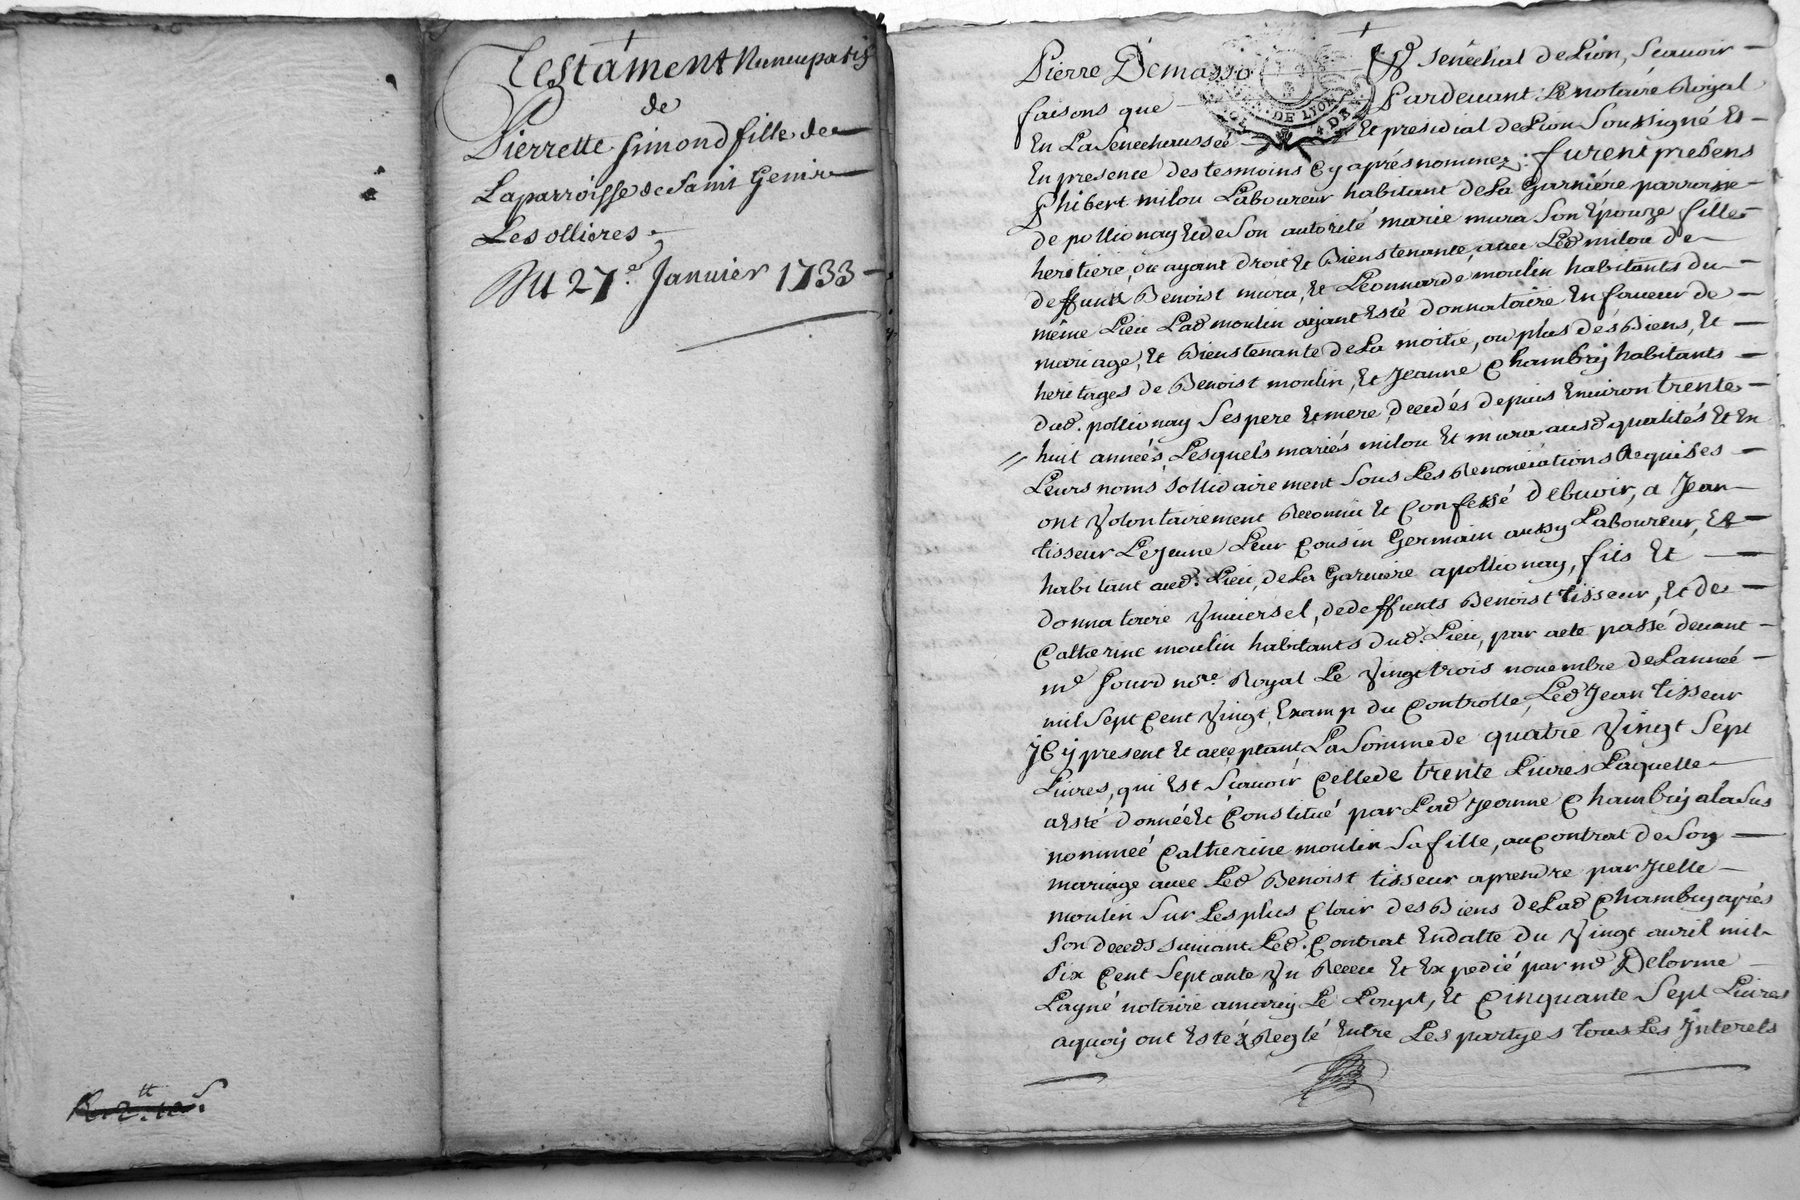 Testament Nuncupatif
de
Pierrette Simond fille de
La parroisse de Saint Genis
Les ollieres.
Du 27.e Janvier 1733
Pierre Demasso
Sénéchal de Lion, Scavoir
faisons que
Pardevant Le notaire Royal
En La Senechaussée
Et presidial de Lion Soussigné Et
En presence des tesmoins Cy aprés nommez: furent presens
Phibert milou Laboureur habitant de La Garniére parroisse
de pollionay Et de Son autorité marie mura Son Epouze fille
heritiere, ou ayant droit Et Bienstenante, avec Led milou de
deffunt Benoist mura, Et Leonnarde moulin habitants du
même Lieu Lad moulin ayant Esté donnatoire En faveur de
mariage, Et Bienstenante de La moitié, ou plus des Biens, Et
heritages de Benoist moulin, Et Jeanne Chambry habitants
dud. pollionay Ses pere Et mere, decedés depuis Environ trente
huit années, Lesquels mariés milou Et mura ausd qualités Et En
Leurs noms Sollidairement Sous Les Renonciations Requises
ont Volontairement Reconnu Et Confessé debvoir, a Jean
tisseur Le Jeune Leur Cousin Germain aussy Laboureur, Et
habitant aud. Lieu, de La Garniere a pollionay, fils Et
donnatoire Vniversel, de deffunts Benoist tisseur, Et de
Catherine moulin habitants dud. Lieu, par acte passé devant
me Sourd nore. Royal Le Vingt trois novembre de L'anneé
mil Sept Cent Vingt, Exemp du Controlle, Led Jean tisseur
JCy present Et acceptant La Somme de quatre Vingt Sept
Livres, qui Est Scavoir Celle de trente Livres Laquelle
a Esté donnée Et Constitué par Lad Jeanne Chambry a la Sus
nommeé Catherine moulin Sa fille, au Contrat de Son
mariage avec Led Benoist tisseur a prendre par Jcelle
moulin Sur Les plus Clair des Biens de Lad Chambry aprés
Son deceds suivant Led. Contrat En datte du Vingt avril mil
Six Cent Septante Vn Receu Et Expedié par me Delorme
Lagné notaire a marcy Le Loup, Et Cinquante Sept Livres
a quoy ont Esté Reglé Entre Les partyes tous Les Jnterets